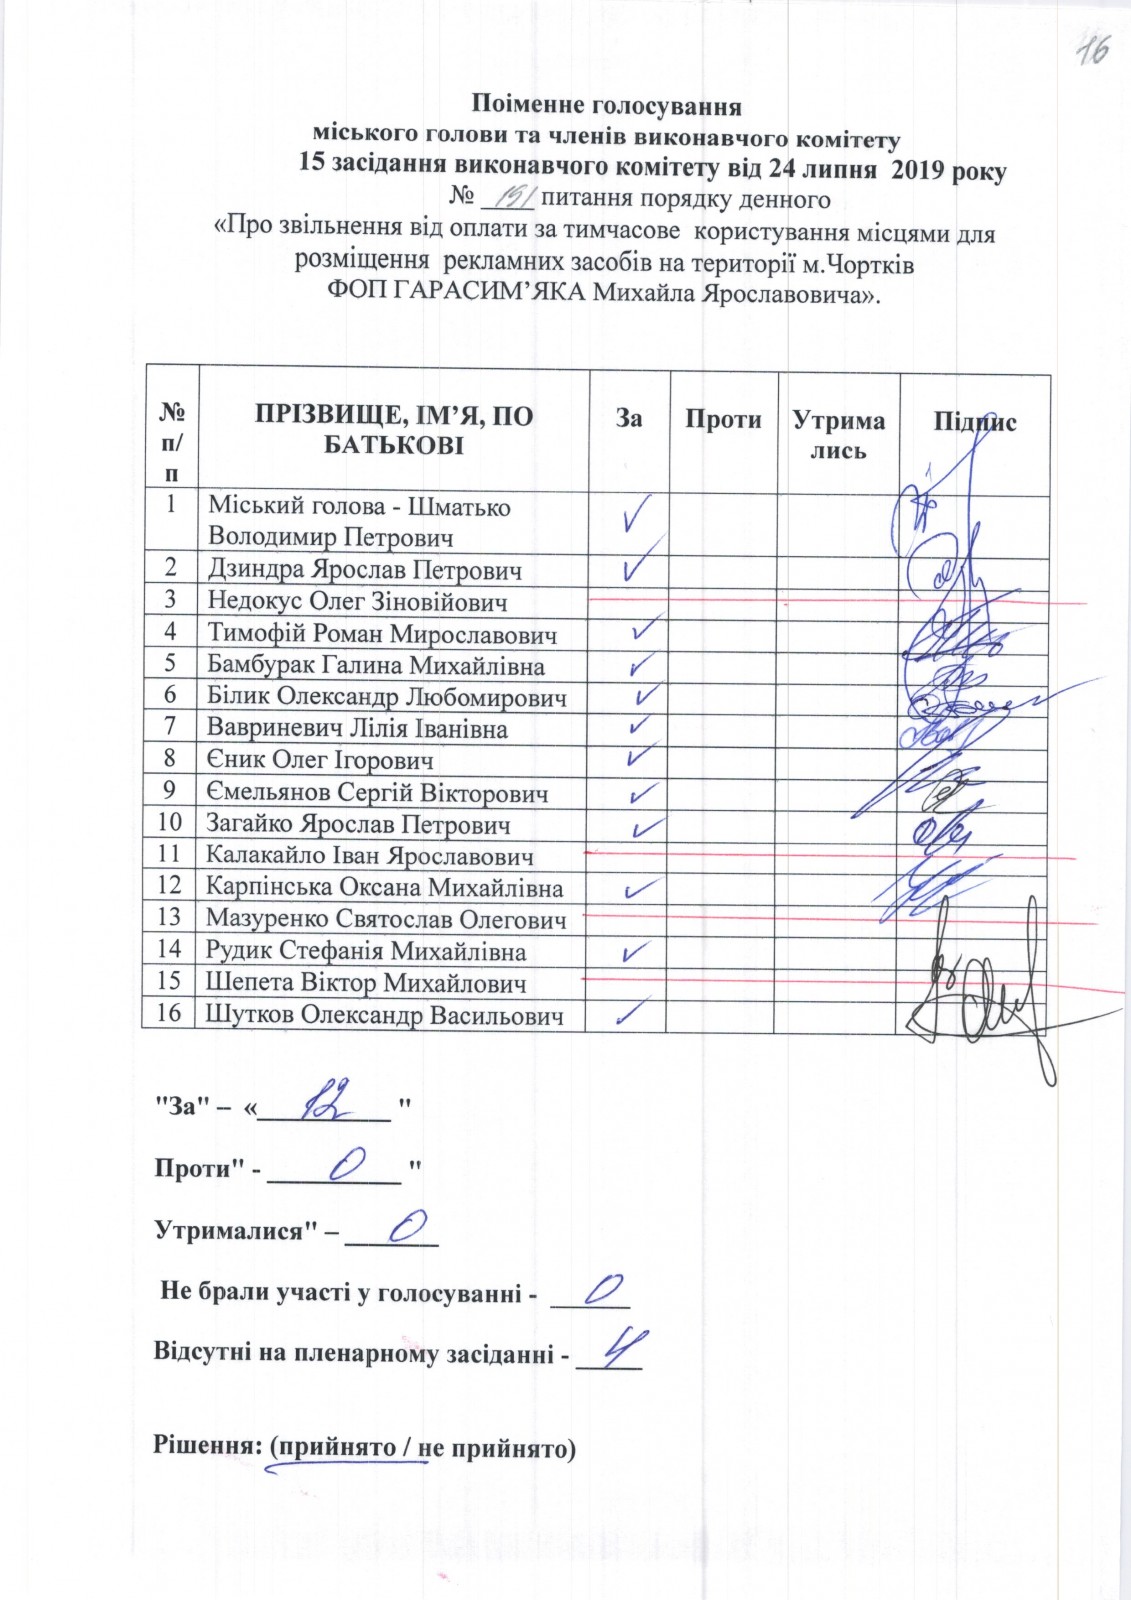 16
Поіменне голосування
міського голови та членів виконавчого комітету
15 засідання виконавчого комітету від 24 липня 2019 року
№ 191 питання порядку денного
«Про звільнення від оплати за тимчасове користування місцями для
розміщення рекламних засобів на території м.Чортків
ФОП ГАРАСИМ’ЯКА Михайла Ярославовича».
№ п/п ПРІЗВИЩЕ, ІМ’Я, ПО БАТЬКОВІ За Проти Утрима лись Підпис
1 Міський голова - Шматько
Володимир Петрович ✓
2 Дзиндра Ярослав Петрович ✓
3 Недокус Олег Зіновійович
4 Тимофій Роман Мирославович ✓
5 Бамбурак Галина Михайлівна ✓
6 Білик Олександр Любомирович ✓
7 Вавриневич Лілія Іванівна ✓
8 Єник Олег Ігорович ✓
9 Ємельянов Сергій Вікторович ✓
10 Загайко Ярослав Петрович ✓
11 Калакайло Іван Ярославович
12 Карпінська Оксана Михайлівна ✓
13 Мазуренко Святослав Олегович
14 Рудик Стефанія Михайлівна ✓
15 Шепета Віктор Михайлович
16 Шутков Олександр Васильович ✓
"За" – « 12 "
Проти" - 0 "
Утрималися" – 0
Не брали участі у голосуванні - 0
Відсутні на пленарному засіданні - 4
Рішення: (прийнято / не прийнято)